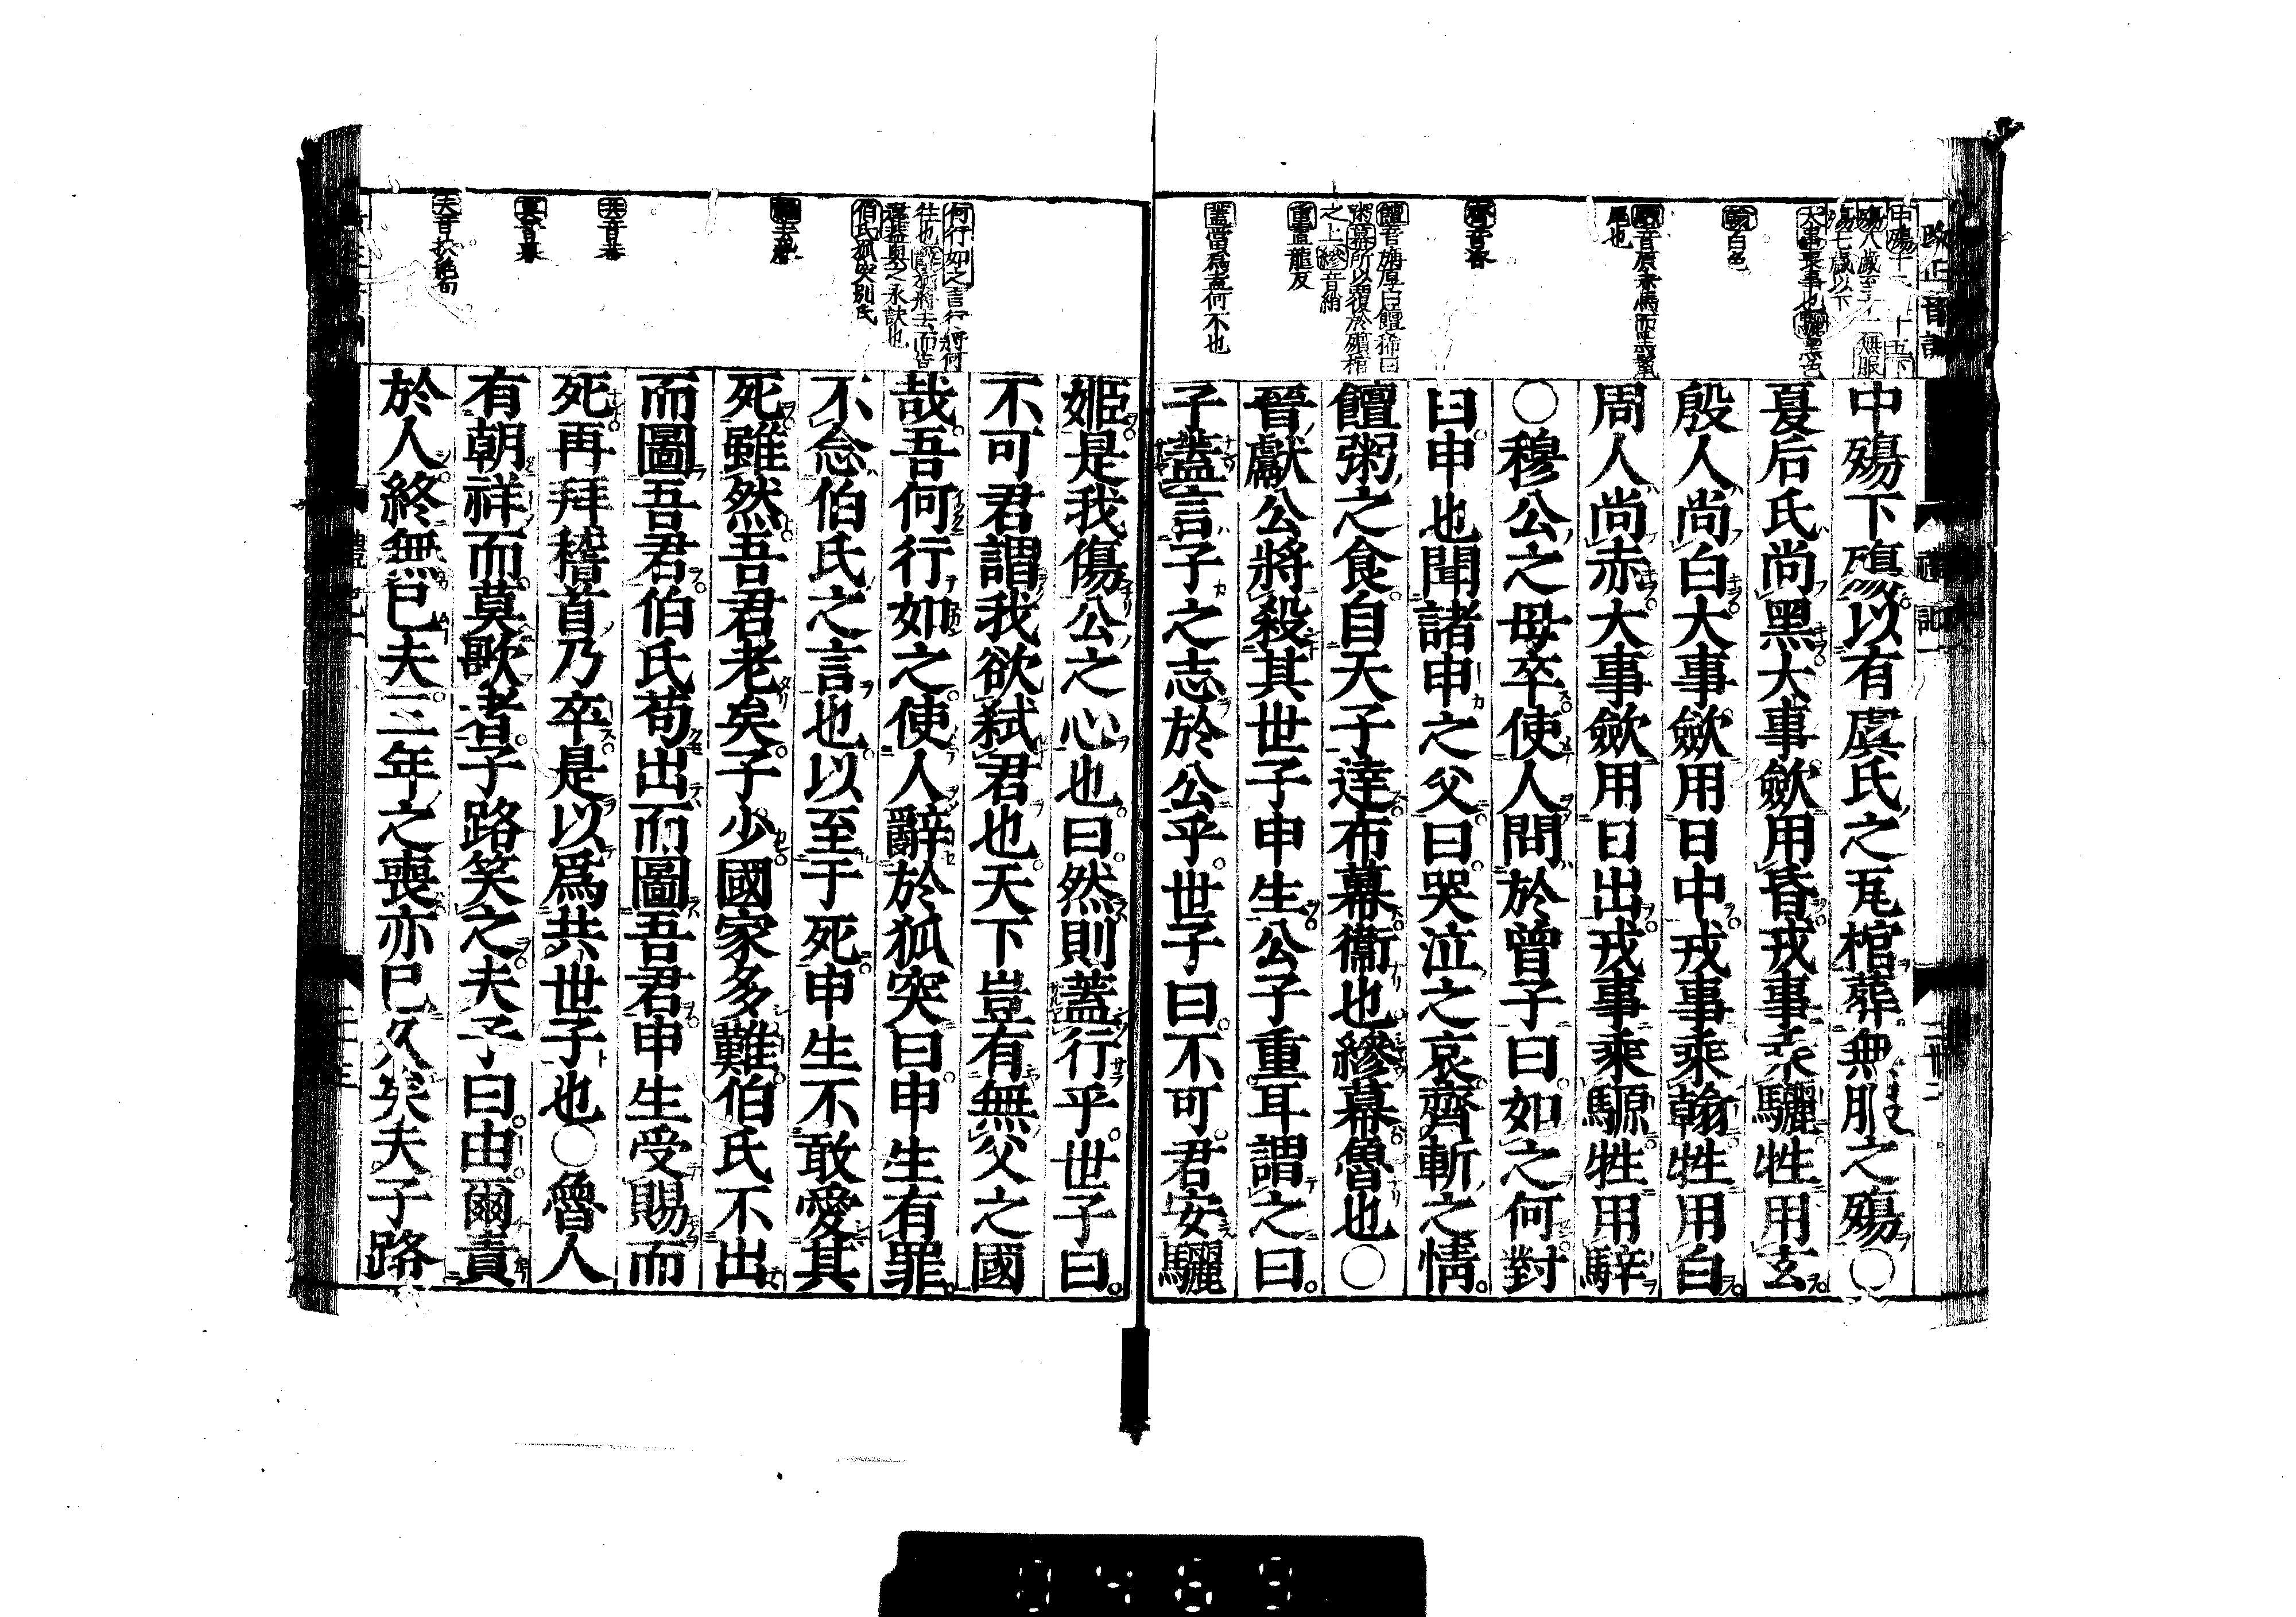 中殤下殤以有虞氏之瓦棺葬無服之殤○
夏后氏尚黑大事歛用昏戎事乘驪牲用玄
殷人尚白大事歛用日中戎事乘翰牲用白
周人尚赤大事歛用日出戎事乘騵牲用騂
○穆公之母卒使人問於曾子曰如之何對
曰申也聞諸申之父曰哭泣之哀齊斬之情
饘粥之食自天子達布幕衞也縿幕魯也○
晉獻公將殺其世子申生公子重耳謂之曰
子蓋言子之志於公乎世子曰不可君安驪
姬是我傷公之心也曰然則蓋行乎世子曰
不可君謂我欲弑君也天下豈有無父之國
哉吾何行如之使人辭於狐突曰申生有罪
不念伯氏之言也以至于死申生不敢愛其
死雖然吾君老矣子少國家多難伯氏不出
而圖吾君伯氏苟出而圖吾君申生受賜而
死再拜稽首乃卒是以爲共世子也○魯人
有朝祥而莫歌者子路笑之夫子曰由爾責
於人終無已夫三年之喪亦已久矣夫子路
大事喪事也驪黑色
翰白色
齊音咨
之上縿音綃
重直龍反
蓋當爲盍何不也
何行如之言行將何
伯氏狐突別氏
共音恭
莫音暮
禮記一